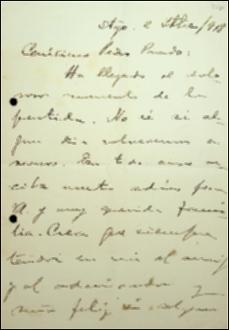 Stgo. 2 /918
Cariñoso Pedro Prado:
Ha llegado el dolo
roso momento de la
partida. No sé si al
gún día volveremos a
vernos. En t
ciba nuestro adiós para
Ud. y muy querida fami
lia. Crea que siempre
tendrá en mí al ami
go y al admirador y
más feliz si algún